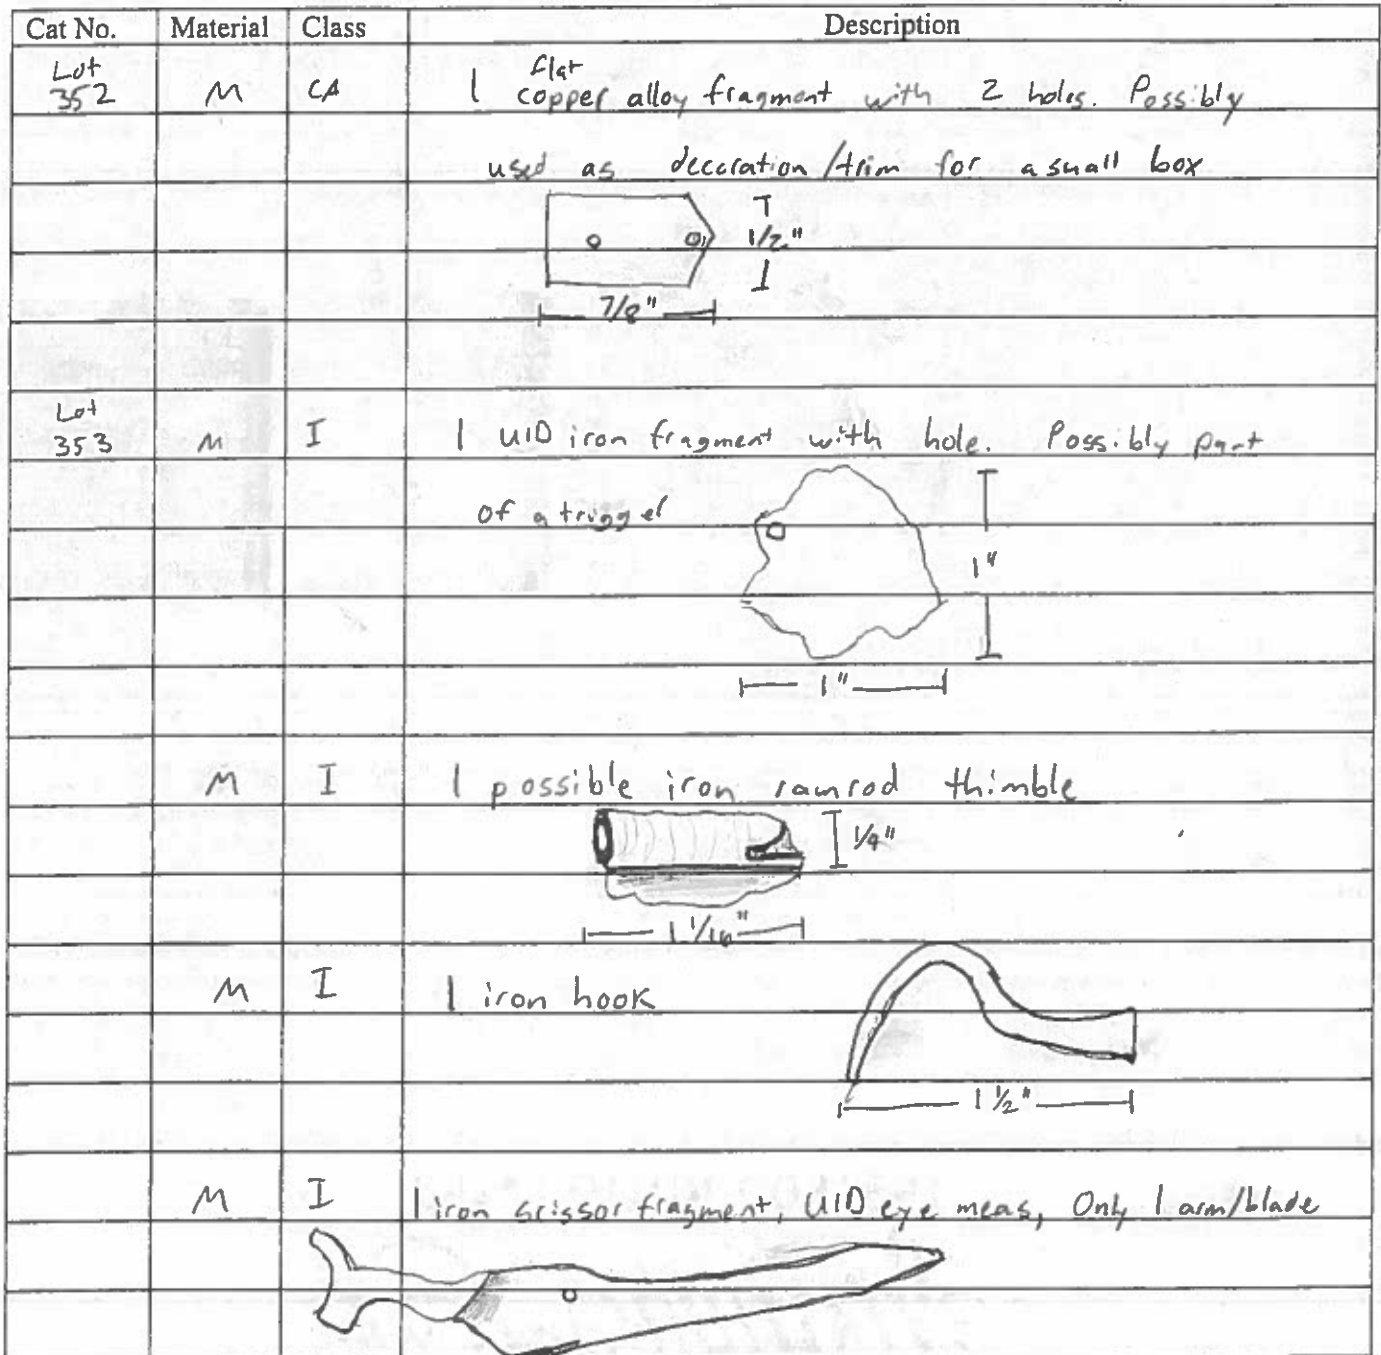 Cat No. Material Class Description
Lot
352 M CA 1 flat copper alloy fragment with 2 holes. Possibly
used as decoration/trim for a small box
1/2"
7/8"
Lot
353 M I 1 UID iron fragment with hole. Possibly part
of a trigger
1"
1"
M I 1 possible iron ramrod thimble
1/4"
1 1/16"
M I 1 iron hook
1 1/2"
M I 1 iron scissor fragment, UID eye meas, Only 1 arm/blade